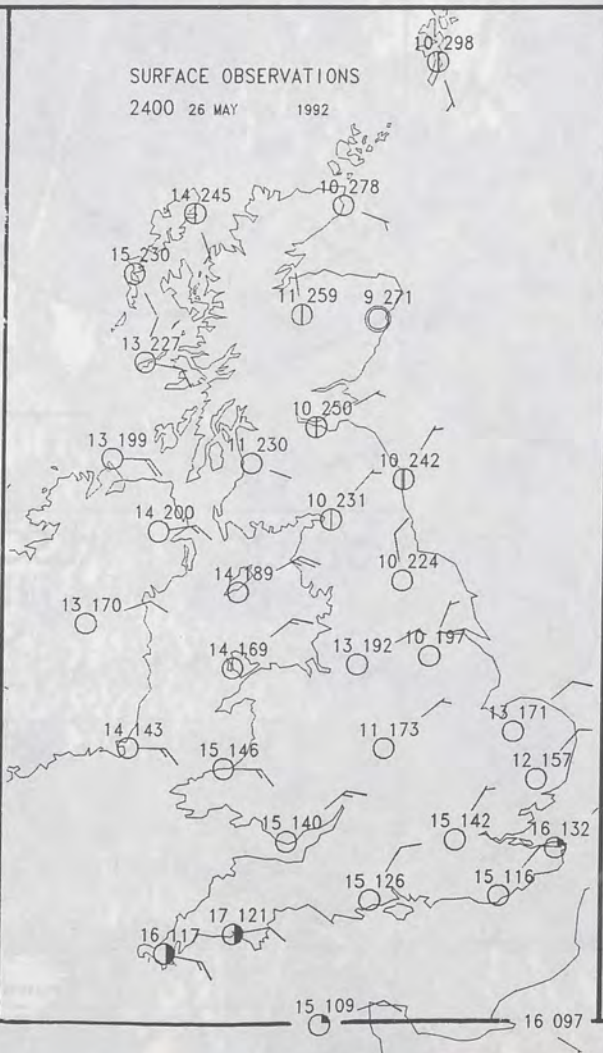 10 298
SURFACE OBSERVATIONS
2400 26 MAY 1992
14 245
10 278
15 230
11 259
9 271
13 227
10 250
13 199
11 230
10 242
14 200
10 231
14 189
10 224
13 170
14 169
13 192
10 197
13 171
14 143
15 146
11 173
12 157
15 140
15 142
16 132
15 126
15 116
17 121
16 117
15 109
16 097